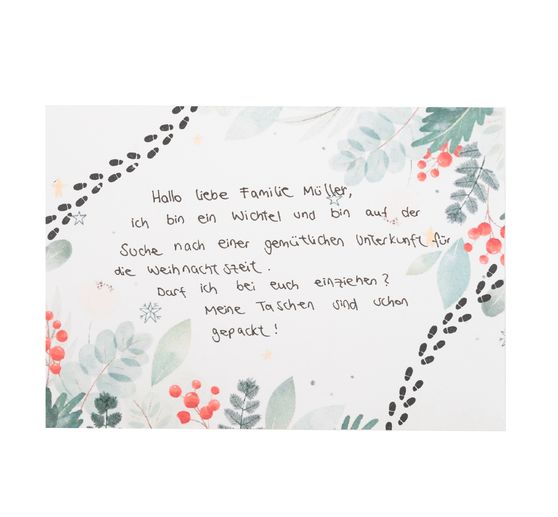 Hallo liebe Familie Müller,
ich bin ein Wichtel und bin auf der
Suche nach einer gemütlichen Unterkunft für
die Weihnachtszeit.
Darf ich bei euch einziehen?
Meine Taschen sind schon
gepackt!